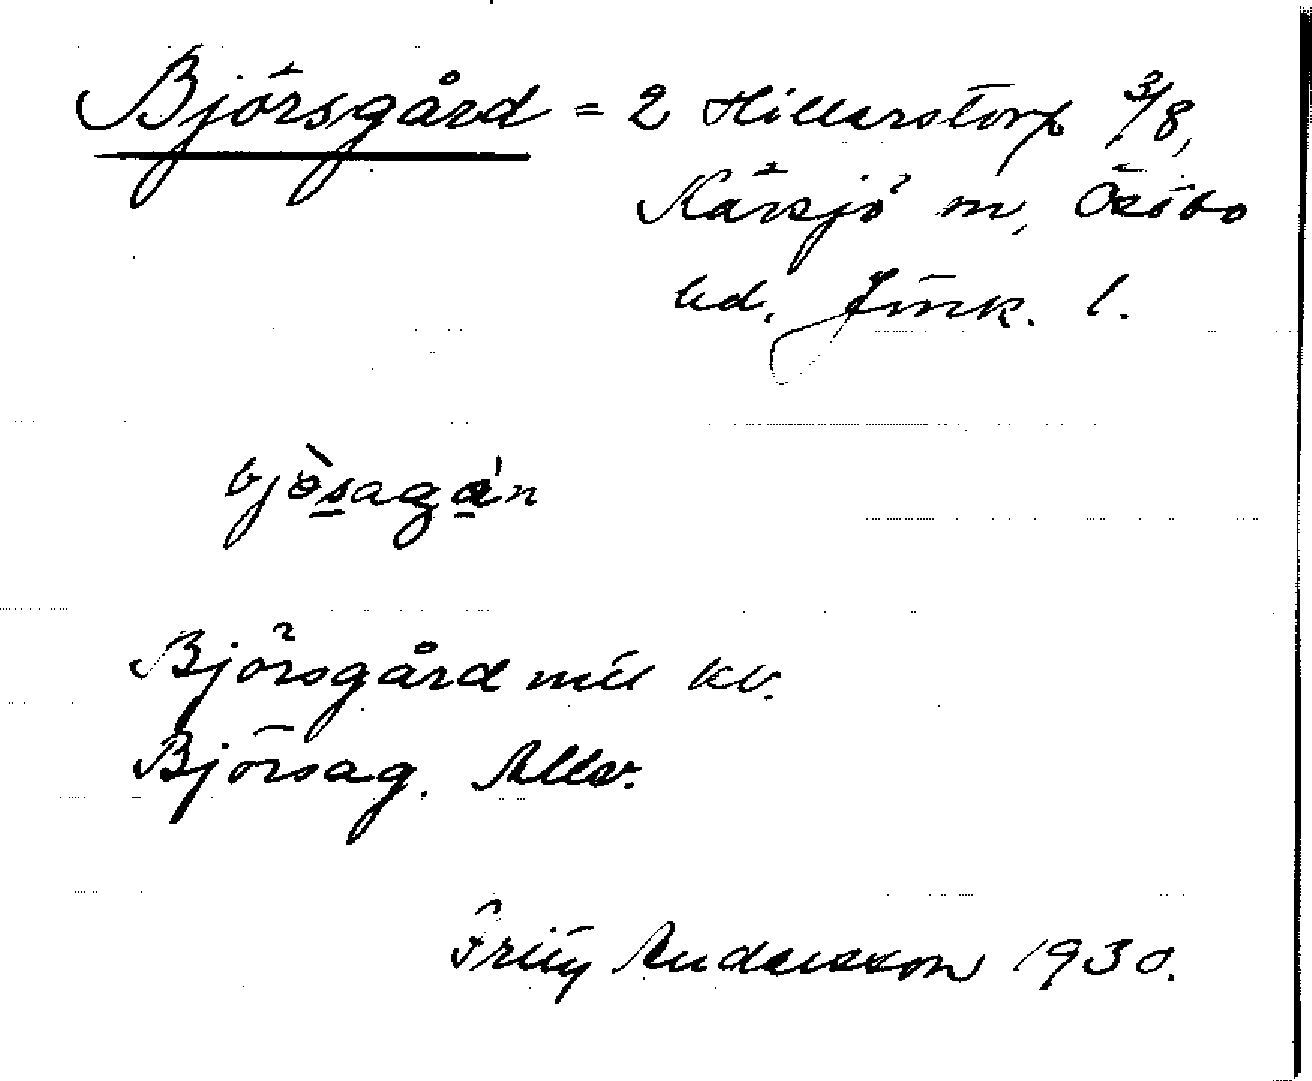 Björsgård = 2 Hillerstorp 3/8,
Kärsjö m, Östbo
hd. Jönk. l.
bjösagan
Björsgård mtl kv.
Björsag. Allm.
Fritz Andersson 1930.